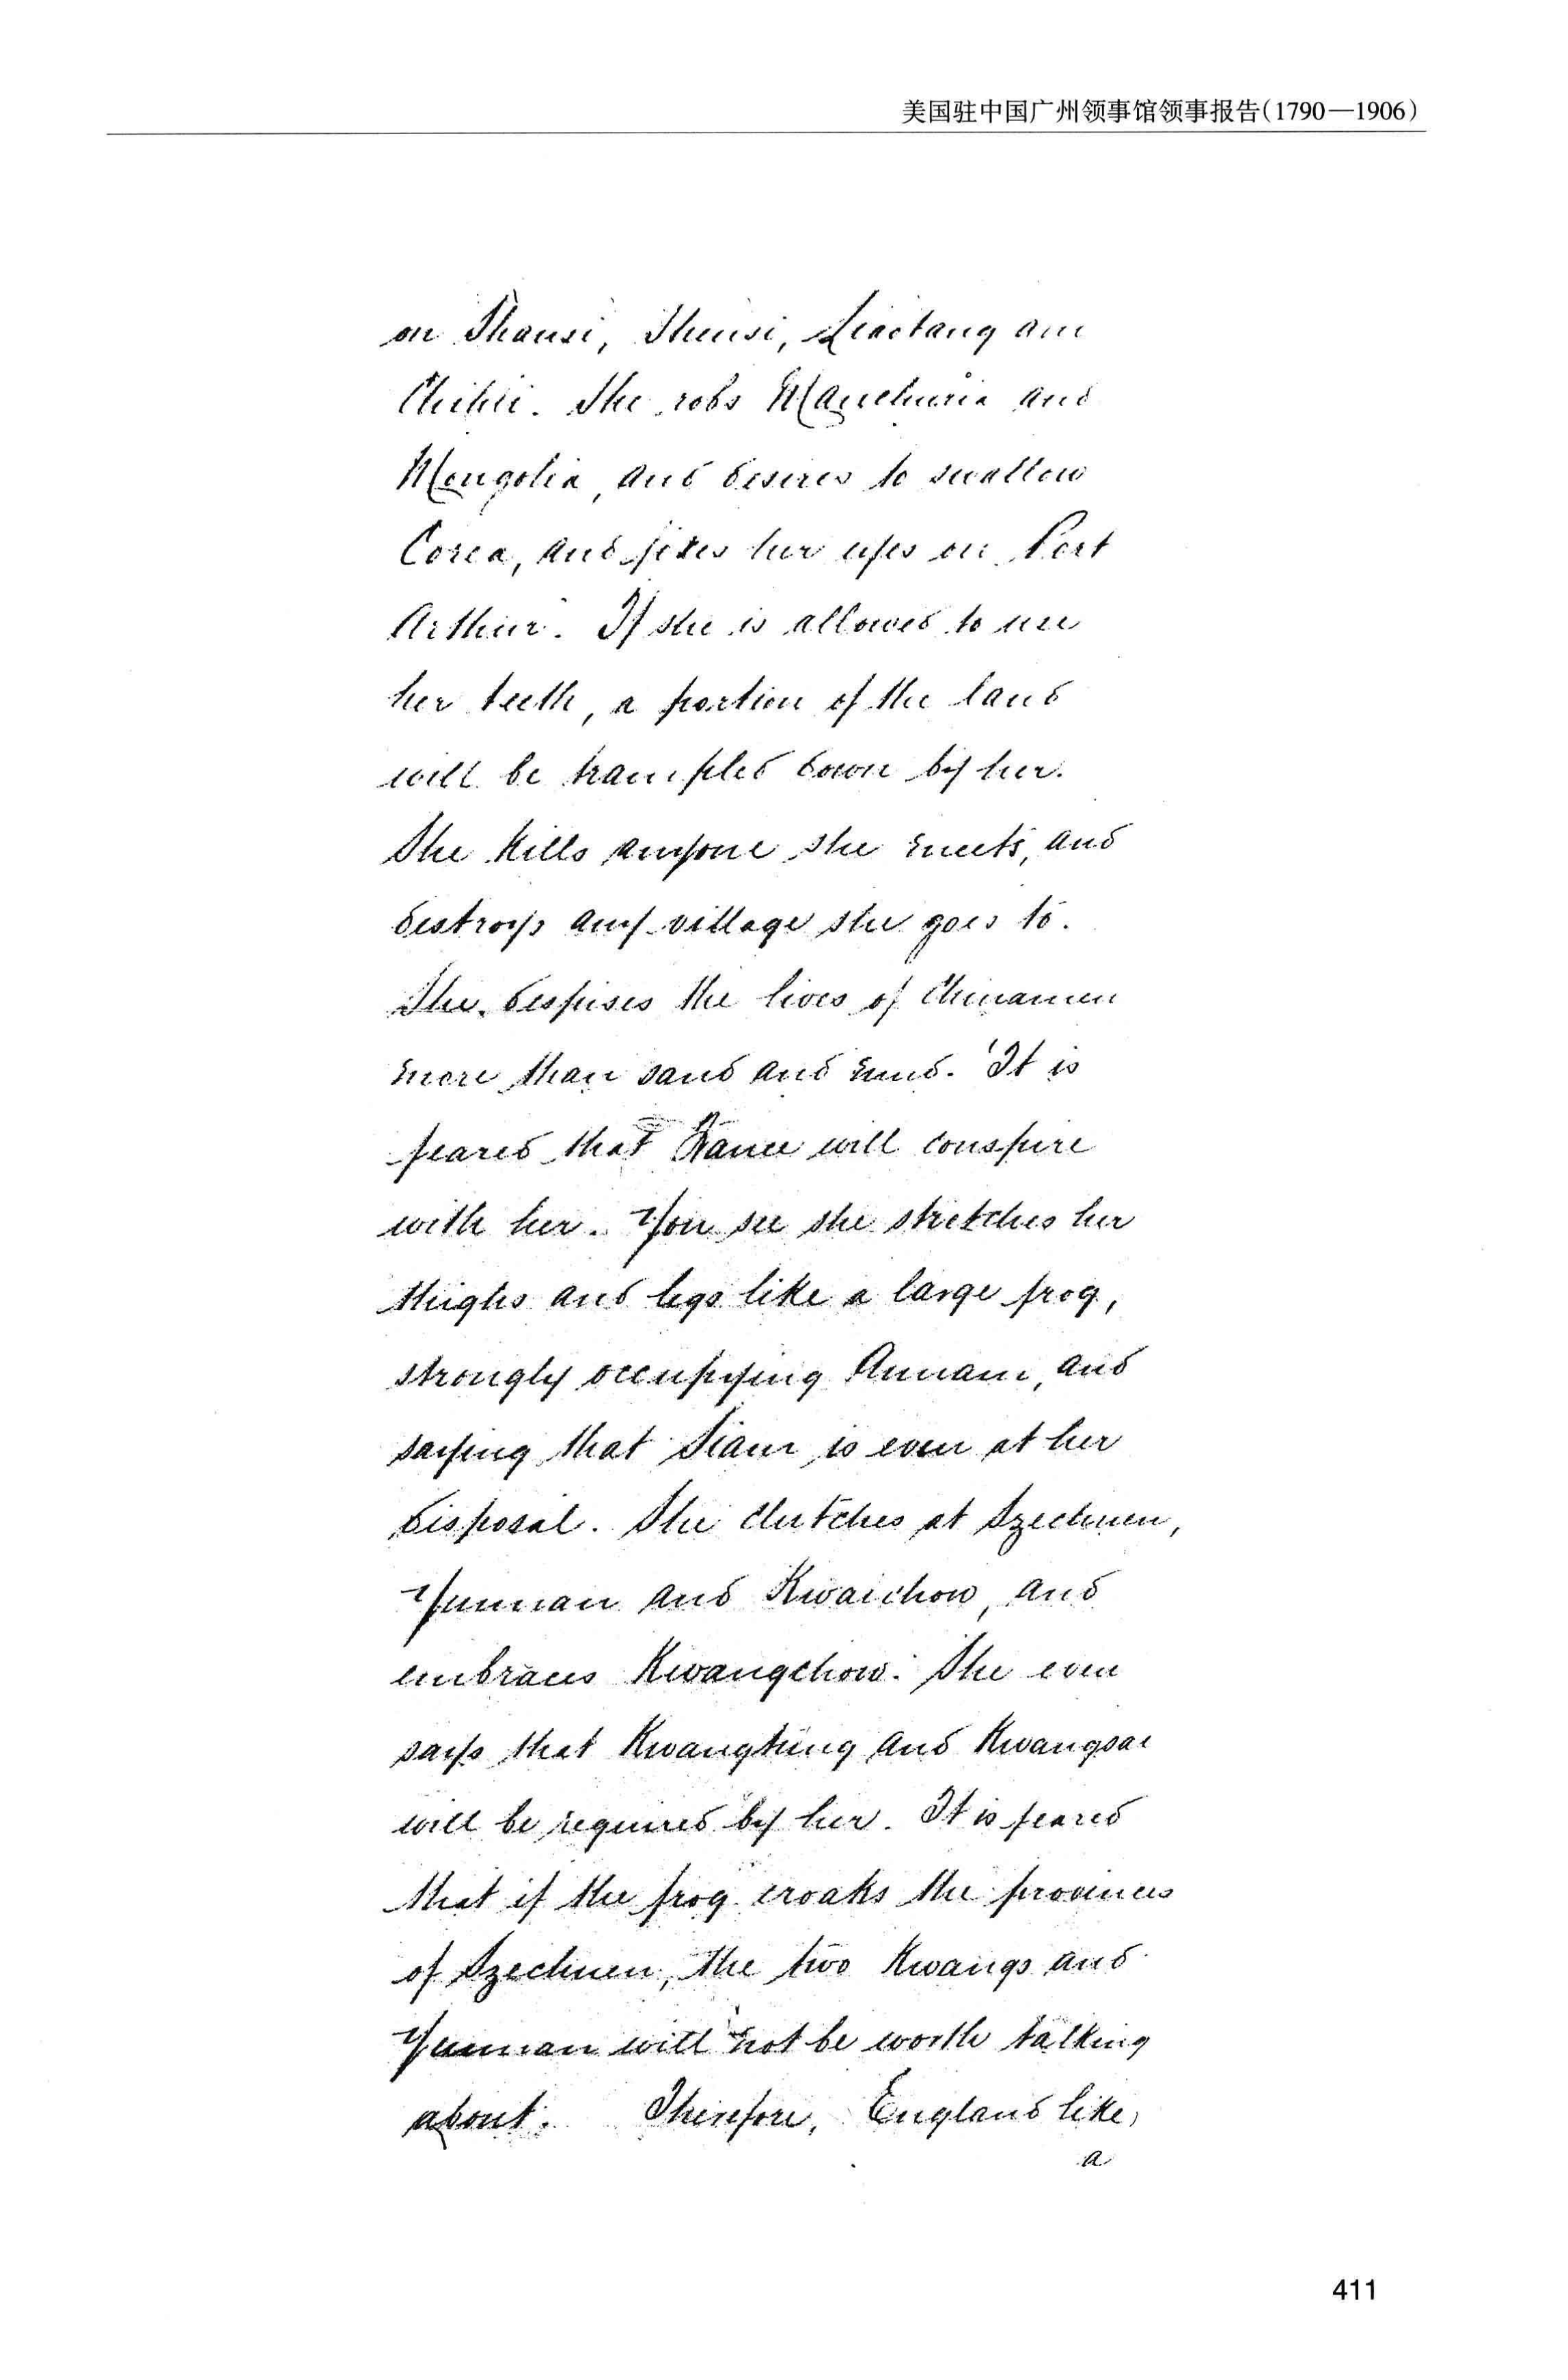 美国驻中国广州领事馆领事报告(1790—1906)
on Shansi, Shensi, Liaotang and
Chihli. She robs Manchuria and
Mongolia, and desires to swallow
Corea, and fixes her eyes on Port
Arthur. If she is allowed to use
her teeth, a portion of the land
will be trampled down by her.
She kills anyone she meets, and
destroys any village she goes to.
She despises the lives of Chinamen
more than sand and mud. It is
feared that France will conspire
with her. You see she stretches her
thighs and legs like a large frog,
strongly occupying Annam, and
saying that Siam is even at her
disposal. She clutches at Szechuen,
Yunnan and Kwaichow, and
embraces Kwangchow. She even
says that Kwangtung and Kwangsai
will be required by her. It is feared
that if the frog croaks the provinces
of Szechuen, the two Kwangs and
Yunnan will not be worth talking
about. Therefore, England like,
a
411